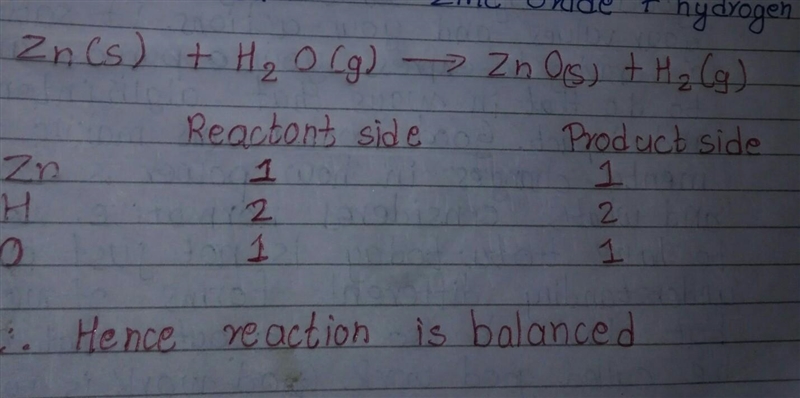 Zinc Oxide + hydrogen
Zn(s) + H₂O(g) → ZnO(s) + H₂(g)
Reactont side Product side
Zn 1 1
H 2 2
O 1 1
∴ Hence reaction is balanced